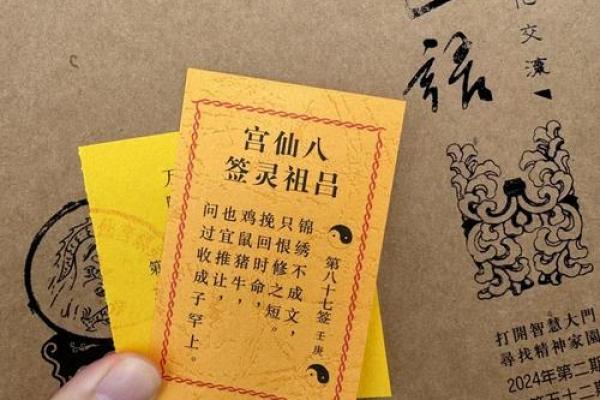 八仙宫
吕祖灵签
第八十七签 壬庚
锦绣不成文，
只恨修之短。
挽回时命，
鸡鼠猪牛，
也宜推让，
问过收成子罕上。
第
話
交流
打開智慧大門
尋找精神家園
2024年第二期
第五十二期